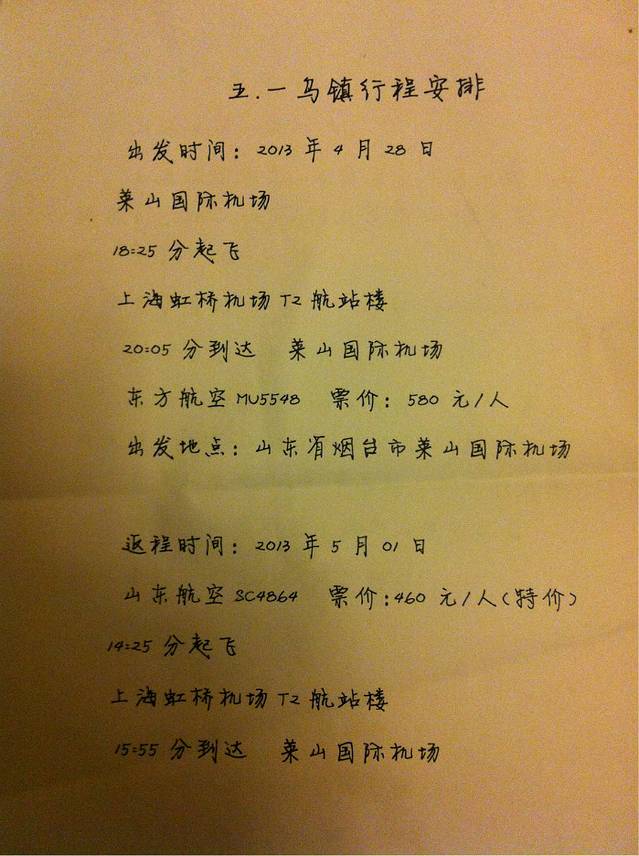 五.一乌镇行程安排
出发时间: 2013 年 4 月 28 日
莱山国际机场
18:25 分起飞
上海虹桥机场 T2 航站楼
20:05 分到达 莱山国际机场
东方航空 MU5548 票价: 580 元/人
出发地点: 山东省烟台市莱山国际机场
返程时间: 2013 年 5 月 01 日
山东航空 SC4864 票价:460 元/人(特价)
14:25 分起飞
上海虹桥机场 T2 航站楼
15:55 分到达 莱山国际机场